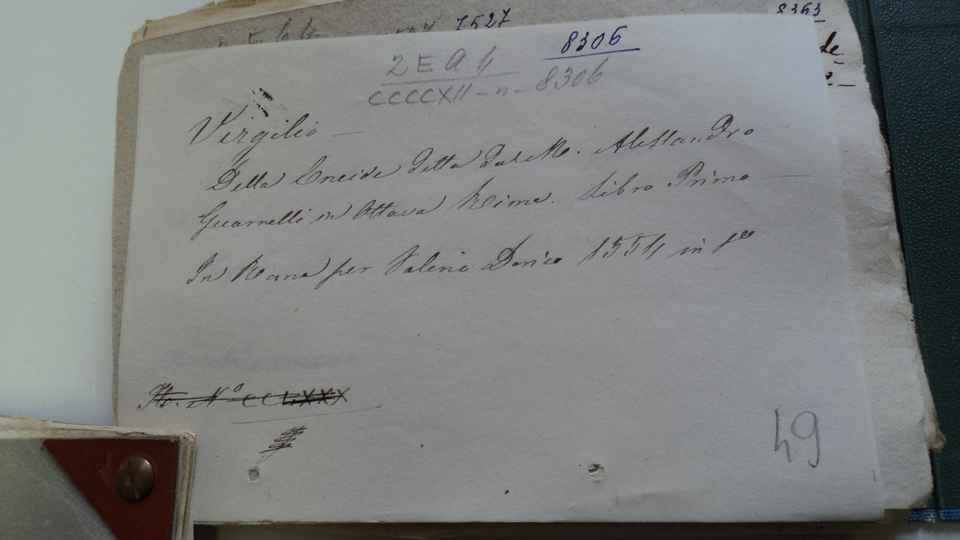 7527
8363
8306
2 E A 4
CCCCXII - n - 8306
Virgilio —
Della Eneide della dal M. Alessandro
Guarnelli in Ottava Rima. Libro Primo —
In Roma per Valerio Dorico 1554 in
N.º CCLXXX
49